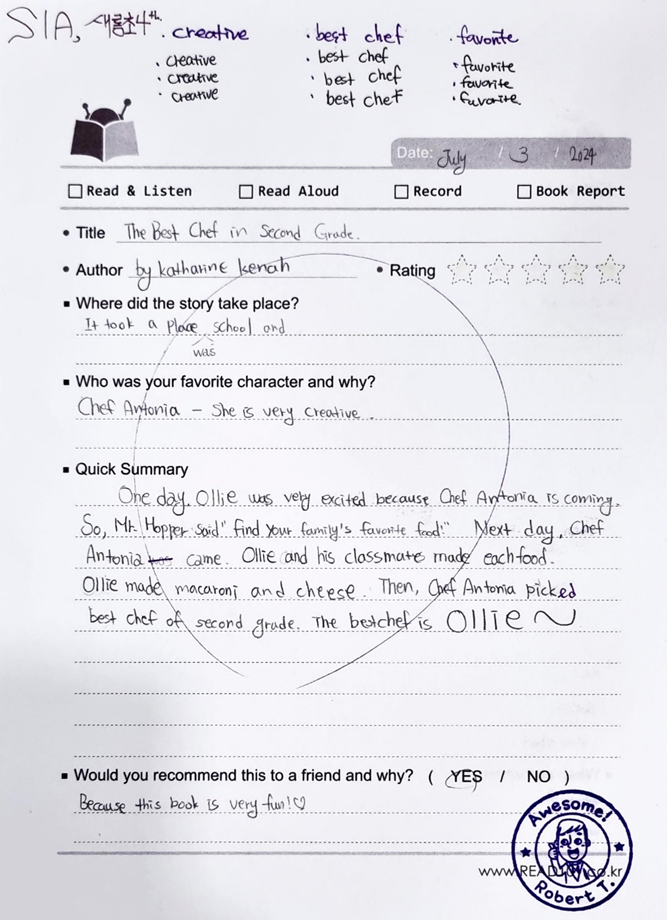 SIA, 새롬초4th. creative · best chef · favorite
· creative · best chef · favorite
· creative · best chef · favorite
· creative · best chef · favorite
Date: July / 3 / 2024
Read & Listen Read Aloud Record Book Report
• Title The Best Chef in Second Grade.
• Author by Katharine Kenah • Rating
▪ Where did the story take place?
It took a place school and
was
▪ Who was your favorite character and why?
Chef Antonia - She is very creative.
▪ Quick Summary
One day, Ollie was very excited because Chef Antonia is coming.
So, Mr. Hopper said" find your family's favorite food!" Next day, Chef
Antonia came. Ollie and his classmate made each food.
Ollie made macaroni and cheese. Then, Chef Antonia picked
best chef of second grade. The best chef is Ollie~
▪ Would you recommend this to a friend and why? ( YES / NO )
Because this book is very fun!♡
Awesome!
Robert T.